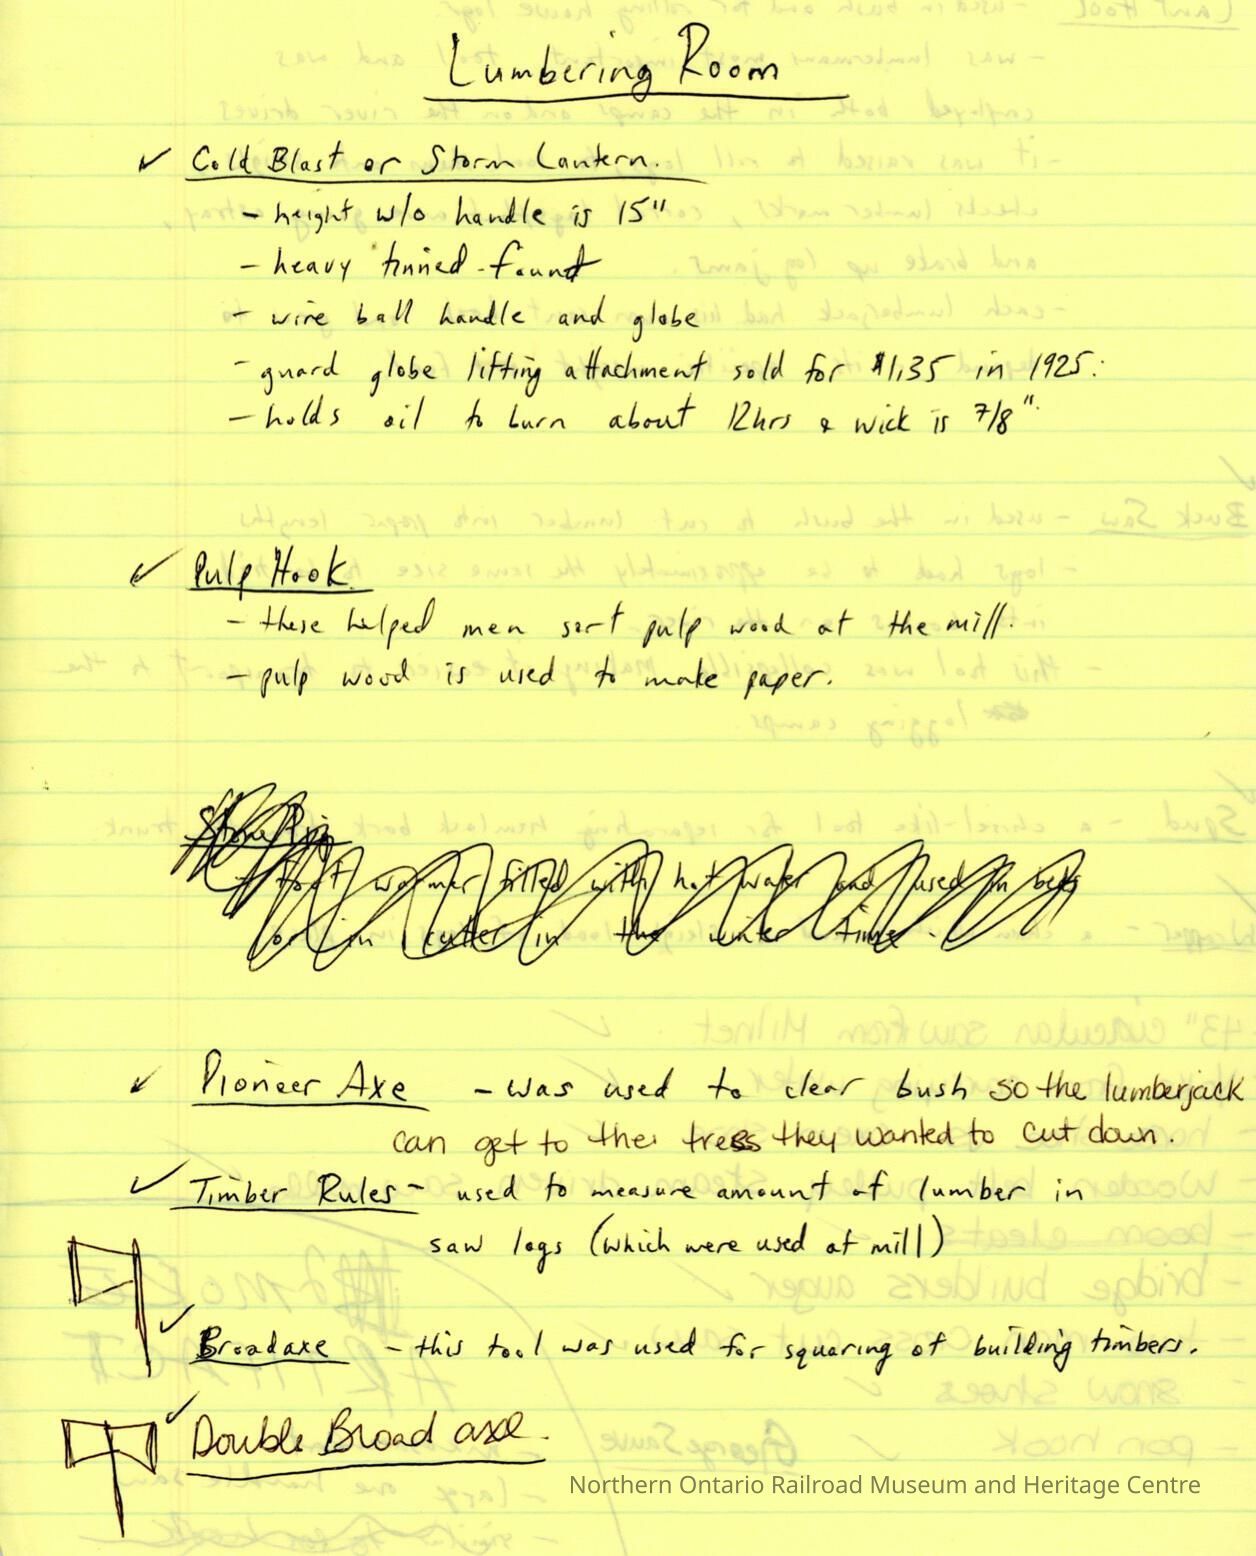 Lumbering Room
✓ Cold Blast or Storm Lantern.
- height w/o handle is 15"
- heavy tinned - fount
- wire ball handle and globe
- guard globe lifting attachment sold for $1.35 in 1925.
- holds oil to burn about 12hrs & wick is 7/8".
✓ Pulp Hook
- these helped men sort pulp wood at the mill.
- pulp wood is used to make paper.
Stone Pig
- foot warmer filled with hot water and used in beds
or in cutter in the winter time.
✓ Pioneer Axe - was used to clear bush so the lumberjack
can get to the trees they wanted to cut down.
✓ Timber Rules - used to measure amount of lumber in
saw logs (which were used at mill)
✓ Broadaxe - this tool was used for squaring of building timbers.
✓ Double Broad axe.
Northern Ontario Railroad Museum and Heritage Centre